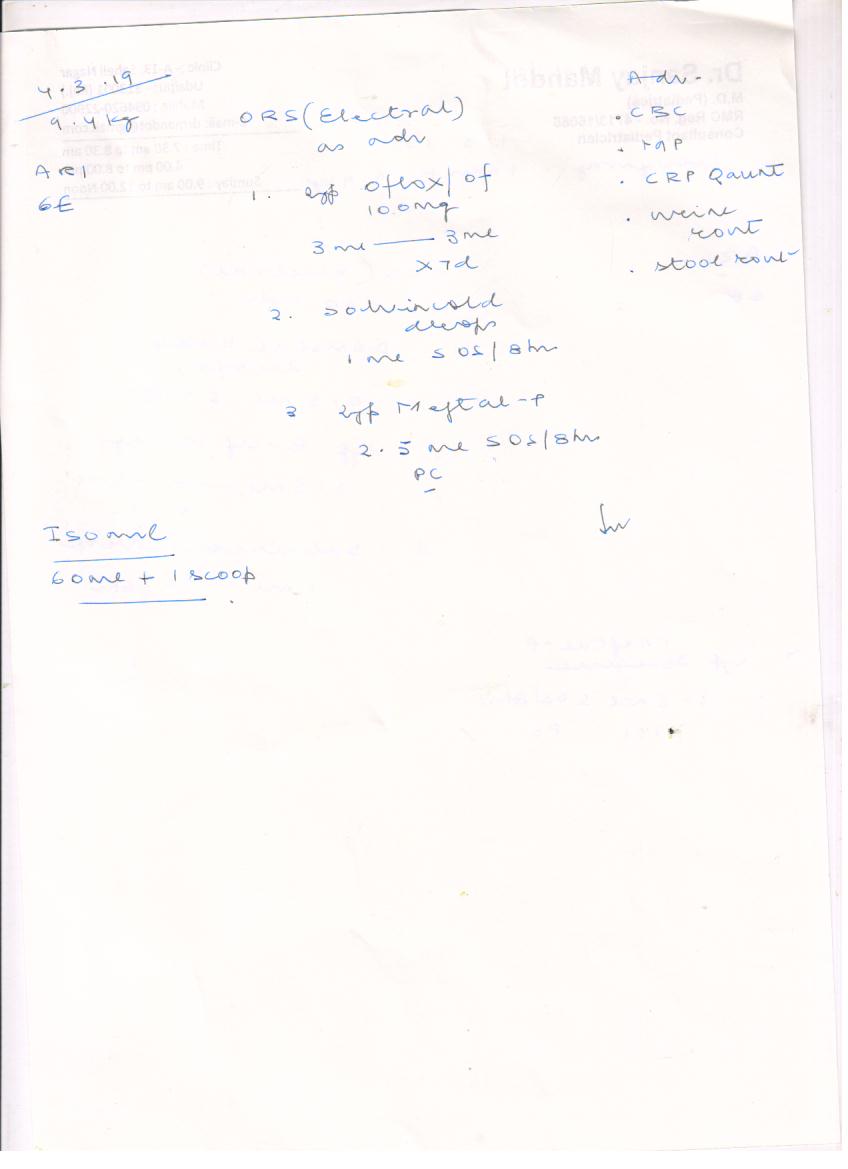 4.3.19
9.4 kg
ARI
GE
ORS (Electral)
as adv
1. syp Oflox / of
100mg
3 ml — 3 ml
x 7d
2. Solvincold
drops
1 ml SOS / 8hr
3 syp Meftal-P
2.5 ml SOS / 8hr
PC
Adv-
. CBC
. CRP Qaunt
. urine
rout
. stool rout
Isomil
60ml + 1 scoop